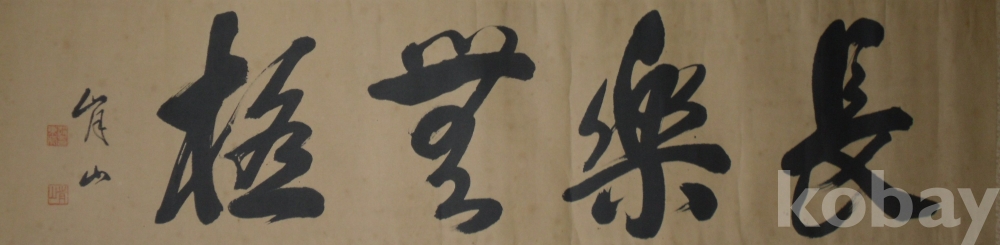 長樂無極
崖山
kobay